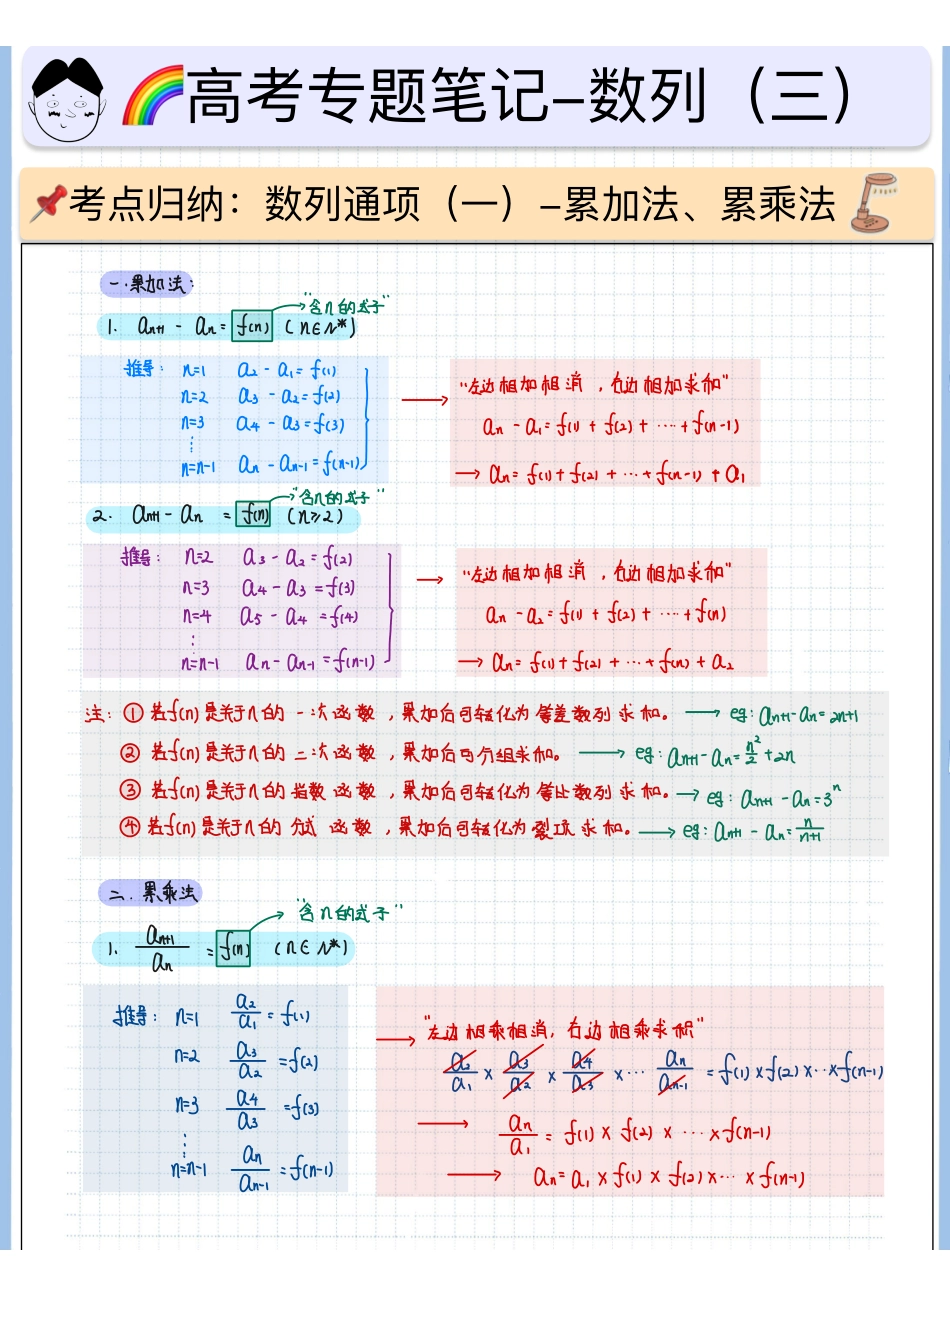 高考专题笔记–数列（三）
考点归纳：数列通项（一）–累加法、累乘法
一.累加法：
"含n的式子"
1. aₙ₊₁ - aₙ = f(n) （n∈N*）
推导： n=1 a₂ - a₁ = f(1)
n=2 a₃ - a₂ = f(2)
n=3 a₄ - a₃ = f(3)
⋮
n=n-1 aₙ - aₙ₋₁ = f(n-1)
→ "左边相加相消，右边相加求和"
aₙ - a₁ = f(1) + f(2) + ··· + f(n-1)
→ aₙ = f(1) + f(2) + ··· + f(n-1) + a₁
"含n的式子"
2. aₙ₊₁ - aₙ = f(n) （n≥2）
推导： n=2 a₃ - a₂ = f(2)
n=3 a₄ - a₃ = f(3)
n=4 a₅ - a₄ = f(4)
⋮
n=n-1 aₙ - aₙ₋₁ = f(n-1)
→ "左边相加相消，右边相加求和"
aₙ - a₂ = f(1) + f(2) + ··· + f(n)
→ aₙ = f(1) + f(2) + ··· + f(n) + a₂
注：① 若f(n)是关于n的一次函数，累加后可转化为等差数列求和。→ eg: aₙ₊₁ - aₙ = 2n+1
② 若f(n)是关于n的二次函数，累加后可分组求和。→ eg: aₙ₊₁ - aₙ = n²/2 + 2n
③ 若f(n)是关于n的指数函数，累加后可转化为等比数列求和。→ eg: aₙ₊₁ - aₙ = 3ⁿ
④ 若f(n)是关于n的分式函数，累加后可转化为裂项求和。→ eg: aₙ₊₁ - aₙ = n/(n+1)
二.累乘法
"含n的式子"
1. aₙ₊₁/aₙ = f(n) （n∈N*）
推导： n=1 a₂/a₁ = f(1)
n=2 a₃/a₂ = f(2)
n=3 a₄/a₃ = f(3)
⋮
n=n-1 aₙ/aₙ₋₁ = f(n-1)
→ "左边相乘相消，右边相乘求积"
a₂/a₁ × a₃/a₂ × a₄/a₃ × ··· aₙ/aₙ₋₁ = f(1)×f(2)×··×f(n-1)
→ aₙ/a₁ = f(1) × f(2) × ··· × f(n-1)
→ aₙ = a₁ × f(1) × f(2) × ··· × f(n-1)